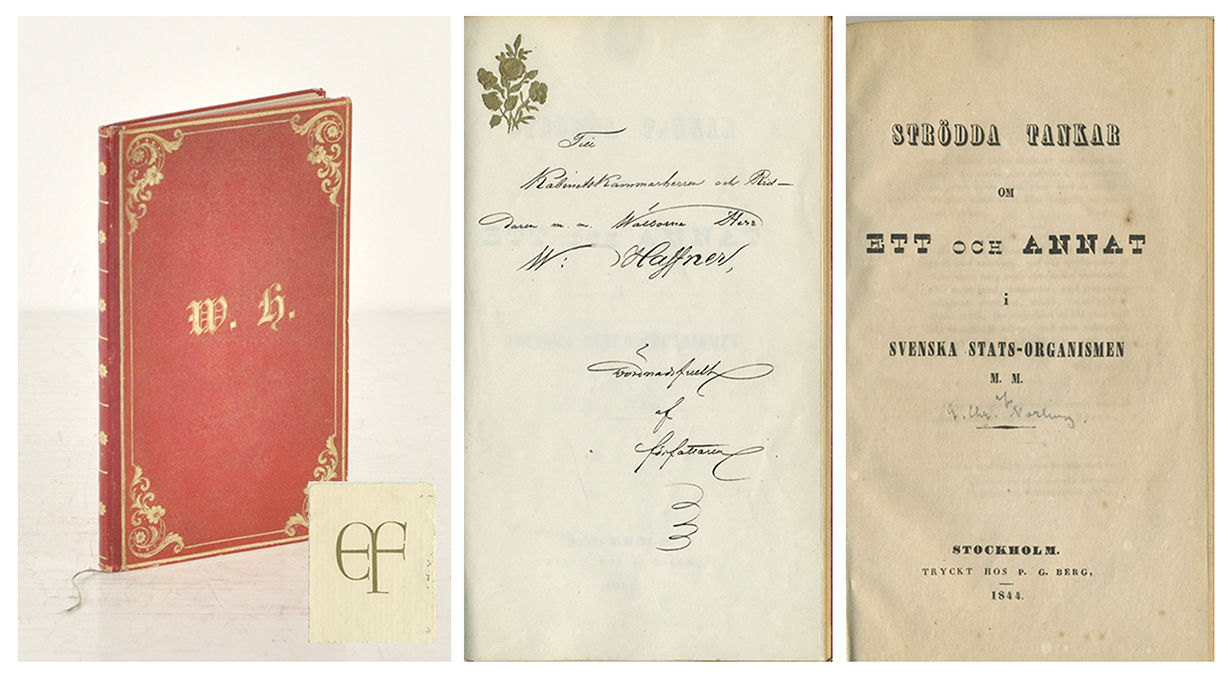 W. H.
EF
Till
Kabinetskammarherren och Rid-
daren m. m. Wälborne Herr
W: Haffner,
Vördnadsfullt
af
författaren
STRÖDDA TANKAR
OM
ETT OCH ANNAT
i
SVENSKA STATS-ORGANISMEN
M. M.
G. Chr. af Norling.
STOCKHOLM.
TRYCKT HOS P. G. BERG,
1844.